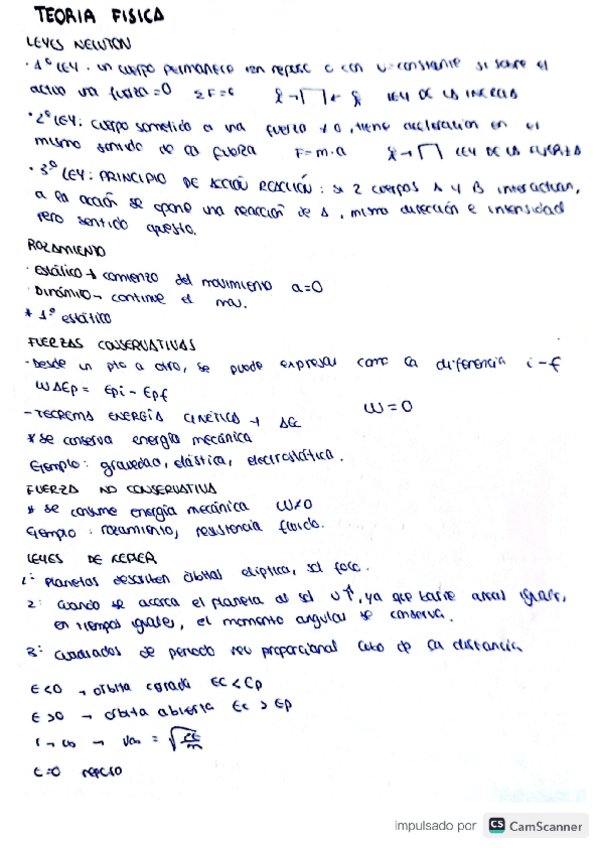 TEORIA FISICA
LEYES NEWTON
· 1º LEY. un cuerpo permanece en reposo o con v constante si sobre el
actua una fuerza = 0 ΣF=0 LEY DE LA INERCIA
· 2º LEY: cuerpo sometido a una fuerza ≠ 0, tiene aceleración en el
mismo sentido de la fuerza F=m·a LEY DE LA FUERZA
· 3º LEY: PRINCIPIO DE ACCIÓN REACCIÓN: si 2 cuerpos A y B interactuan,
a la acción se opone una reacción de A, misma dirección e intensidad
pero sentido opuesto.
ROZAMIENTO
· estático → comienzo del movimiento a=0
· Dinámico → continue el mov.
* 1º estático
FUERZAS CONSERVATIVAS
- Desde un pto a otro, se puede expresar como la diferencia i-f
WΔEp = Epi - Epf
W=0
- TEOREMA ENERGÍA CINÉTICA → ΔEc
* se conserva energía mecánica
Ejemplo: gravedad, elástica, electrostática.
FUERZA NO CONSERVATIVA
* se consume energía mecánica W≠0
Ejemplo: rozamiento, resistencia fluido.
LEYES DE KEPLER
1: Planetas describen órbitas elíptica, sol foco.
2: Cuando se acerca el planeta al sol v↑, ya que barre areas iguales,
en tiempos iguales, el momento angular se conserva.
3: cuadrados de periodo proporcional cubo de la distancia
E<0 → orbita cerrada Ec<Ep
E>0 → orbita abierta Ec>Ep
E=0 reposo
impulsado por CS CamScanner